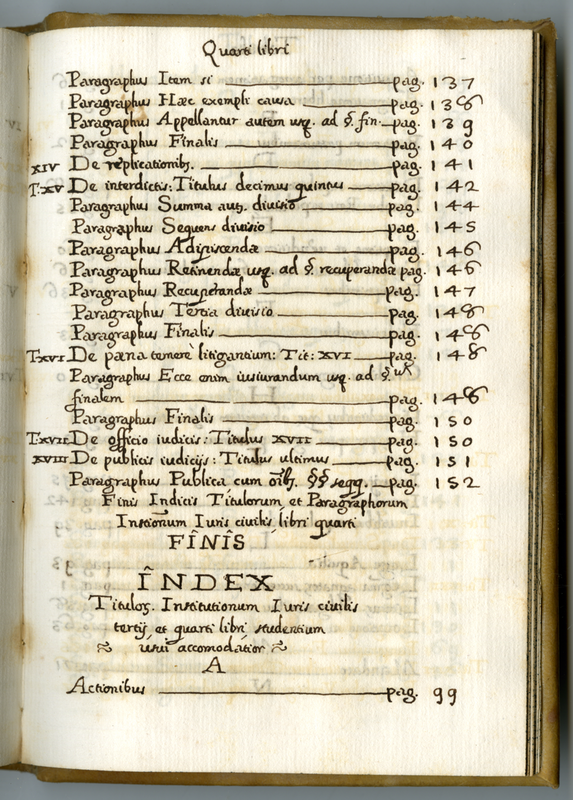 Quarti libri
Paragraphus Item si pag. 137
Paragraphus Hæc exempli causa pag. 138
Paragraphus Appellantur autem usq. ad §. fin. pag. 139
Paragraphus Finalis pag. 140
XIV De replicationib. pag. 141
T.XV De interdictis: Titulus decimus quintus pag. 142
Paragraphus Summa aut. divisio pag. 144
Paragraphus Sequens divisio pag. 145
Paragraphus Adipiscendæ pag. 146
Paragraphus Retinendæ usq. ad §. recuperandæ pag. 146
Paragraphus Recuperandæ pag. 147
Paragraphus Tertia divisio pag. 148
Paragraphus Finalis pag. 148
T.XVI De pæna temerè litigantium: Tit: XVI pag. 148
Paragraphus Ecce enim iusiurandum usq. ad §.
finalem pag. 148
Paragraphus Finalis pag. 150
T.XVII De officio iudicis: Titulus XVII pag. 150
XVIII De publicis iudicijs: Titulus ultimus pag. 151
Paragraphus Publica cum oib. §§ seqq. pag. 152
Finis Indicis Titulorum et Paragraphorum
Instionum Iuris civilis libri quarti
FÎNÎS
ÎNDEX
Titulor. Institutionum Iuris civilis
tertij, et quarti libri studentium
usui accomodatior
A
Actionibus pag. 99